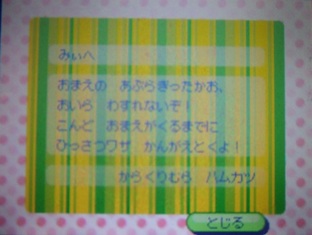 みぃへ
おまえの　あぶらぎったかお、
おいら　わすれないぞ！
こんど　おまえがくるまでに
ひっさつワザ　かんがえとくよ！
からくりむら　ハムカツ
とじる